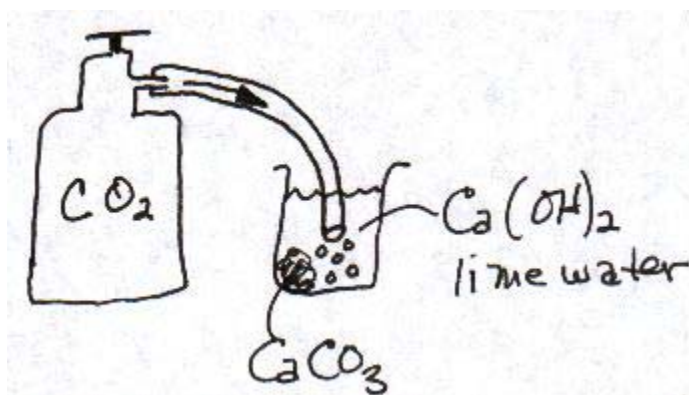 CO₂
Ca(OH)₂
lime water
CaCO₃